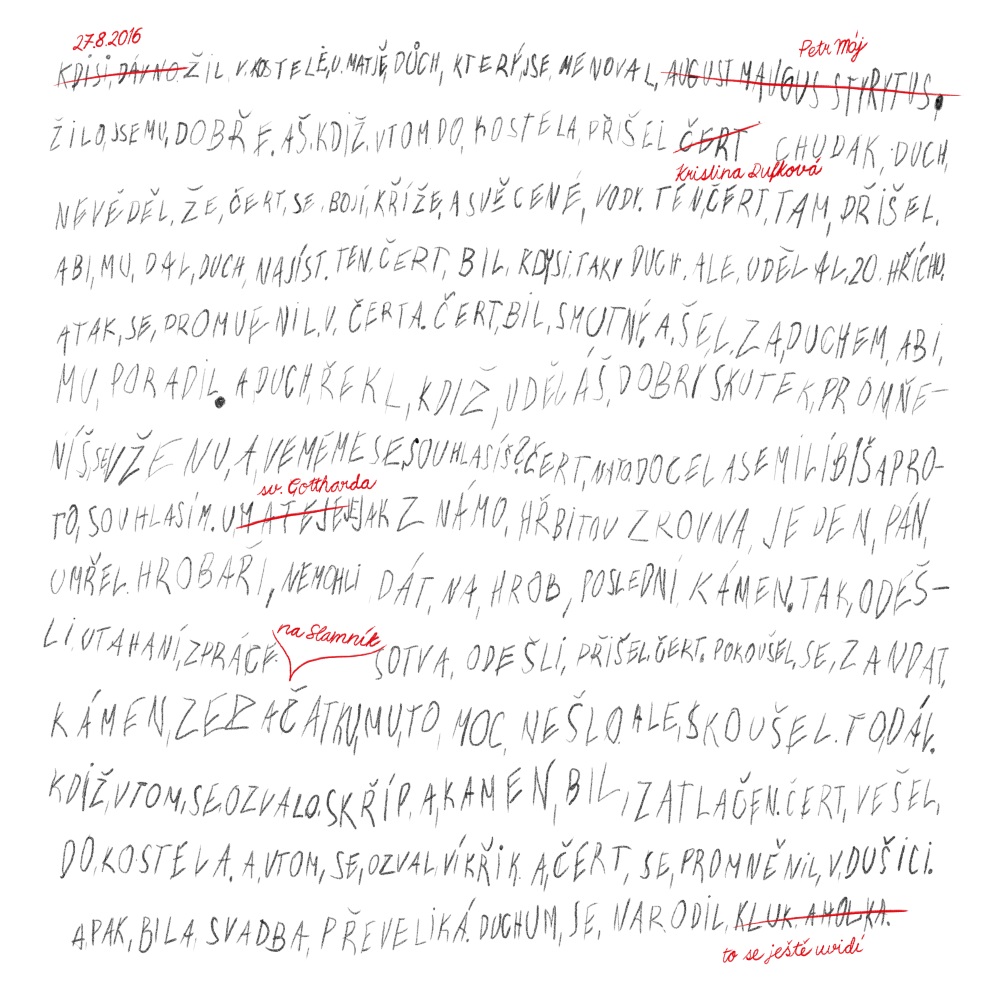 27.8.2016
Petr Máj
KDISI, DÁVNO. ŽIL V. KOSTELE, U. MATJĚ, DŮCH, KTERÝ, JSE, MENOVAL, AUGUST MAUGUS STYRYTUS.
ŽILO, JSEMU, DOBŘE. AŠ. KDIŽ. VTOM DO, KOSTELA, PŘIŠEL ČERT CHUDAK, DUCH,
Kristina Dufková
NEVĚDĚL, ŽE, ČERT, SE, BOJÍ, KŘÍŽE, A SVĚCENÉ, VODY. TEN, ČERT, TAM, PŘIŠEL.
ABI, MU, DAL, DUCH, NAJÍST. TEN. ČERT, BIL, KDYSI. TAKY DUCH. ALE, UDĚLAL, 20. HŘÍCHU.
A TAK, SE, PROMUENIL. V. ČERTA. ČERT, BIL, SMUTNÉ, A, ŠEL, ZA, DUCHEM, ABI,
MU, PORADIL. A DUCH, ŘEKL, KDIŽ, UDĚLÁŠ, DOBRY SKUTEK, PROMŇE-
NÍŠ, SE, VŽENU, A, VEMEME SE, SOUHLASÍŠ? ČERT, NATO, DOCELA SE MI LÍBIŠ A PRO-
sv. Gottharda
TO, SOUHLASIM. U MATEJE JE JAK ZNÁMO, HŘBITOV ZROVNA, JEDEN, PÁN,
UMŘEL. HROBAŘI, NEMOHLI DÁT, NA, HROB, POSLEDNÍ KÁMEN. TAK, ODEŠ-
LI, UTAHANÍ, ZPRÁCE. na Slamník SOTVA, ODEŠLI, PŘIŠEL, ČERT. POKOUŠEL, SE, ZANDAT,
KÁMEN, ZE ZAČATKU, MU, TO, MOC, NEŠLO ALE, SKOUŠEL. TO, DÁL.
KDIŽ, VTOM, SE OZVALO, SKŘÍP, A, KAMEN, BIL, ZATLAČEN. ČERT, VEŠEL,
DO, KOSTELA. A, VTOM, SE, OZVAL, VÍKŘIK. A, ČERT, SE, PROMNĚNIL, V. DUŠICI.
A. PAK, BILA, SVADBA, PŘEVELIKÁ. DUCHUM, SE, NARODIL, KLUK. A HOLKA.
to se ještě uvidí